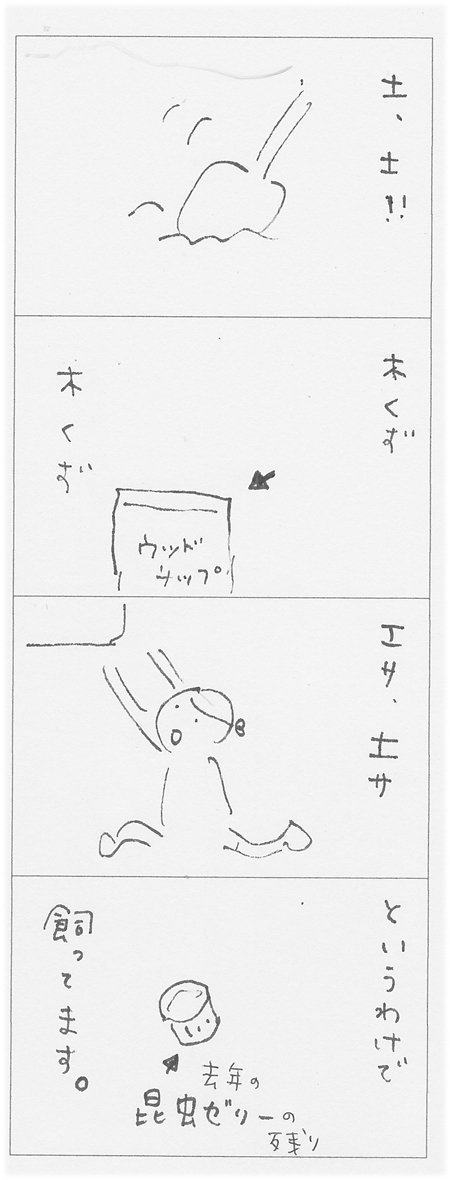 土、土!!
木くず
木くず
ウッド
チップ
エサ、エサ
というわけで
去年の
昆虫ゼリーの
残り
飼ってます。